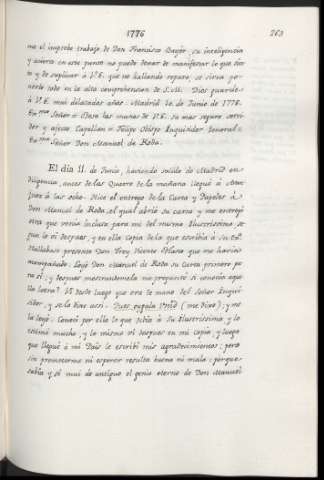 1776 263
me el improbo trabajo de Don Francisco Bayer, su inteligencia
y acierto en este punto no puedo dexar de manifestar lo que sien-
to y de suplicar à V.E. que no hallando reparo, se sirva po-
nerlo todo en la alta comprehension de S.M. Dios guarde
à V.E. mui dilatados años. Madrid 10 de Junio de 1776.
Exmo. Señor = Besa las manos de V.E. su mas seguro servi-
dor y afecto Capellan = Felipe Obispo Inquisidor General =
Exmo. Señor Don Manuel de Roda.
El dia 11. de Junio, haviendo salido de Madrid en
diligencia, antes de las Quatro de la mañana llegué à Aran-
juez à las ocho. Hice el entrego de la Carta y Papeles à
Don Manuel de Roda, el qual abrió su carta y me entregó
otra que venia inclusa para mi del mismo Ilustrissimo, se-
gun lo vi despues, y en ella copia de la que escribia à Su Ex.ª
Hallabase presente Don Frey Vicente Blasco que me havia
acompañado. Leyó Don Manuel de Roda su Carta primero pa-
ra si; y despues mostrandomela me preguntó si conocia aque-
lla letra? Vi desde luego que era de mano del Señor Inqui-
sidor, y se lo dixe assi. Pues oygala Vmd. (me dixo); y me
la leyó. Conocí por ella lo que debia à Su Ilustrissima y lo
estimé mucho, y lo mismo vi despues en mi copia, y luego
que llegué à mi Pais le escribí mis agradecimientos; pero
sin prometerme ni esperar resulta buena ni mala: porque
sabía y de mui de antiguo el genio eterno de Don Manuel